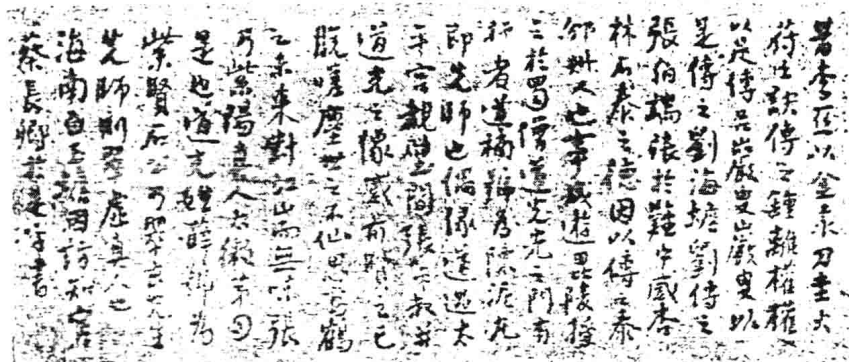 昔李亞以金汞刀圭火
符之訣傳之鍾離權權
以是傳呂巖叟巖叟以
是傳之劉海蟾劉傳之
張伯端張於難中感杏
林石泰之德因以傳之泰
邠州人也事成遊毘陵授
之於蜀僧道光光之門有
行者道楠號為陳泥丸
即先師也偶緣道過太
平宮觀壁間張平叔并
道光之像感前賢之已
既嗟塵世之不仙思鶴
之未來對江山而無味張
乃紫陽真人太微第四
星也道光姓薛號為
紫賢石公乃翠玄先生
先師則翠虛真人也
海南白玉蟾因訪知宮
蔡長卿於是乎書